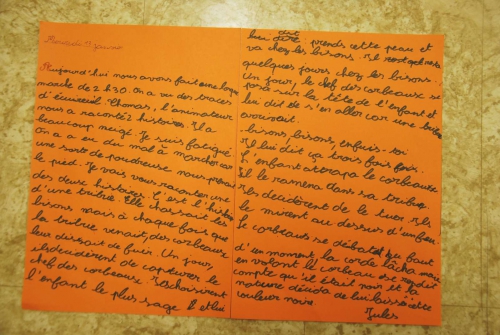 Mercredi 19 janvier
Aujourd'hui nous avons fait une longue
marche de 2 h 30. On a vu des traces
d'écureuil. Thomas, l'animateur
nous a raconté 2 histoires. Il a
beaucoup neigé. Je suis fatigué.
On a eu du mal à marcher car
une sorte de poudreuse nous prenait
le pied. Je vais vous raconter une
des deux histoires. C'est l'histoire
d'une tribue. Elle chassait les
bisons mais à chaque fois que
la tribue venait, des corbeaux
leur disait de fuir. Un jour,
ils décidèrent de capturer le
chef des corbeaux. Ils choisirent
l'enfant le plus sage et
lui dit prends cette peau et
va chez les bisons. Il resta
quelques jours chez les bisons.
Un jour, le chef des corbeaux se
posa sur la tête de l'enfant et
lui dit de s'en aller car une tribue
arrivait.
- bisons, bisons, enfuis-toi
Il lui dit ça trois fois.
L'enfant attrapa le corbeau
et le ramena dans sa tribue.
Ils décidèrent de le tuer. Ils
le mirent au dessus d'un feu.
Le corbeau se débattait. Au bout
d'un moment la corde lâcha mais
en volant le corbeau se rendit
compte qu'il était noir et la
nature décida de lui laisser cette
couleur noire.
Jules